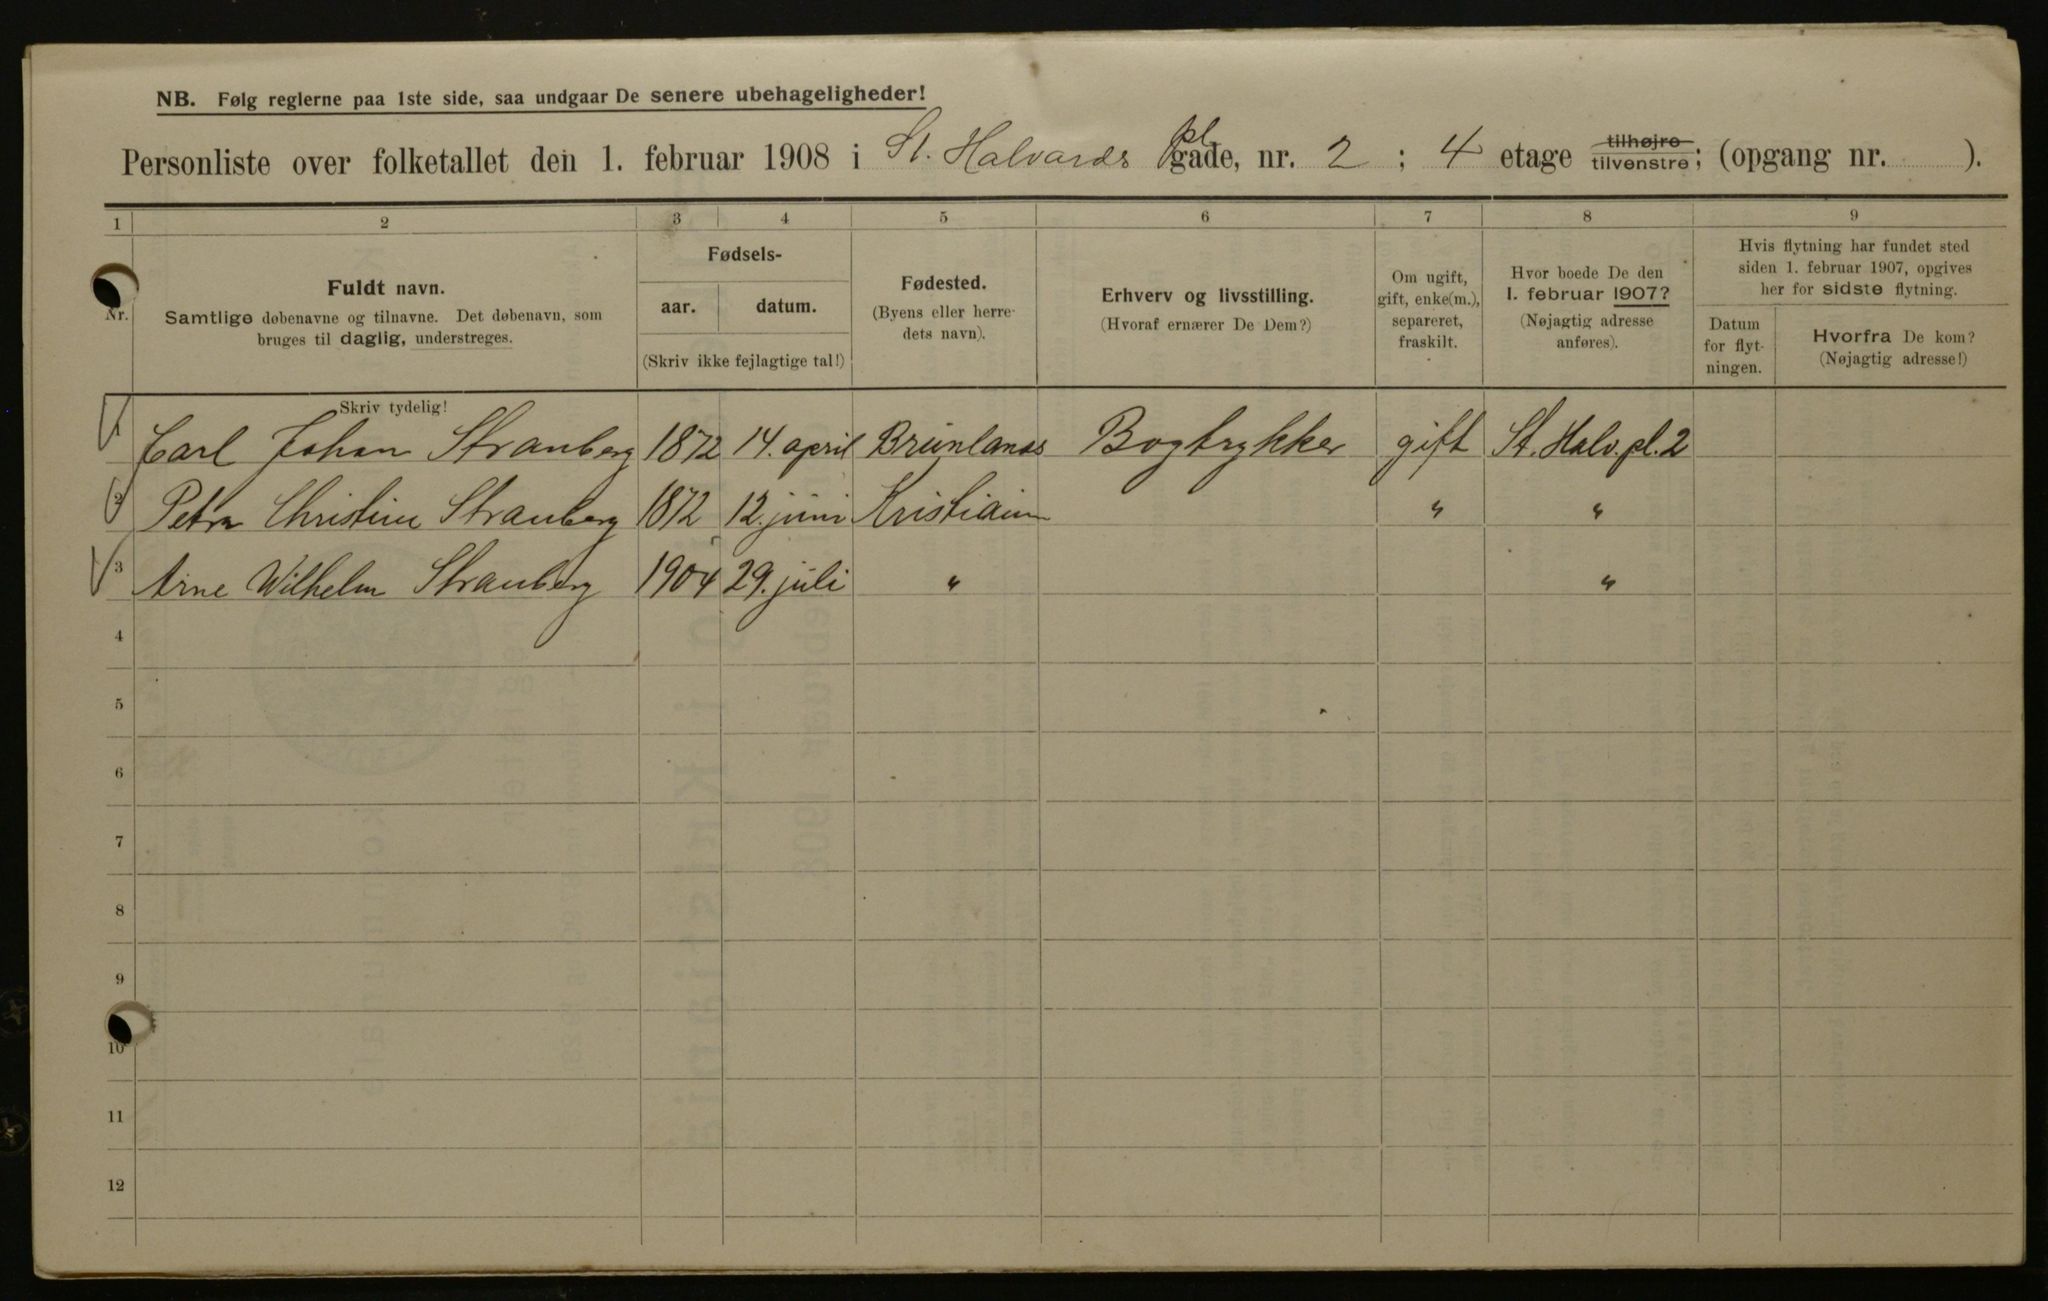 NB. Følg reglerne paa 1ste side, saa undgaar De senere ubehageligheder!
Personliste over folketallet den 1. februar 1908 i St. Halvards pl. gade, nr. 2 ; 4 etage tilhøjre tilvenstre; (opgang nr. ).
1 2 3 4 5 6 7 8 9
Nr.
Fuldt navn.
Samtlige døbenavne og tilnavne. Det døbenavn, som
bruges til daglig, understreges.
Skriv tydelig!
Fødsels-
aar. datum.
(Skriv ikke fejlagtige tal!)
Fødested.
(Byens eller herre-
dets navn).
Erhverv og livsstilling.
(Hvoraf ernærer De Dem?)
Om ugift,
gift, enke(m.),
separeret,
fraskilt.
Hvor boede De den
1. februar 1907?
(Nøjagtig adresse
anføres).
Hvis flytning har fundet sted
siden 1. februar 1907, opgives
her for sidste flytning.
Datum
for flyt-
ningen.
Hvorfra De kom?
(Nøjagtig adresse!)
1 Carl Johan Stranberg 1872 14. april Brunlanæs Bogtrykker gift St. Halv. pl. 2
2 Petra Christine Stranberg 1872 12. juni Kristiania " "
3 Arne Wilhelm Stranberg 1904 29. juli " "
4
5
6
7
8
9
10
11
12